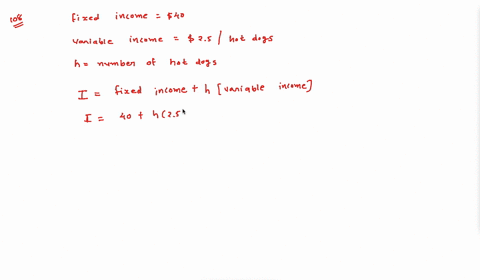 108
fixed income = $40
variable income = $ 2.5 / hot dogs
h = number of hot dogs
I = fixed income + h [variable income]
I = 40 + h(2.5